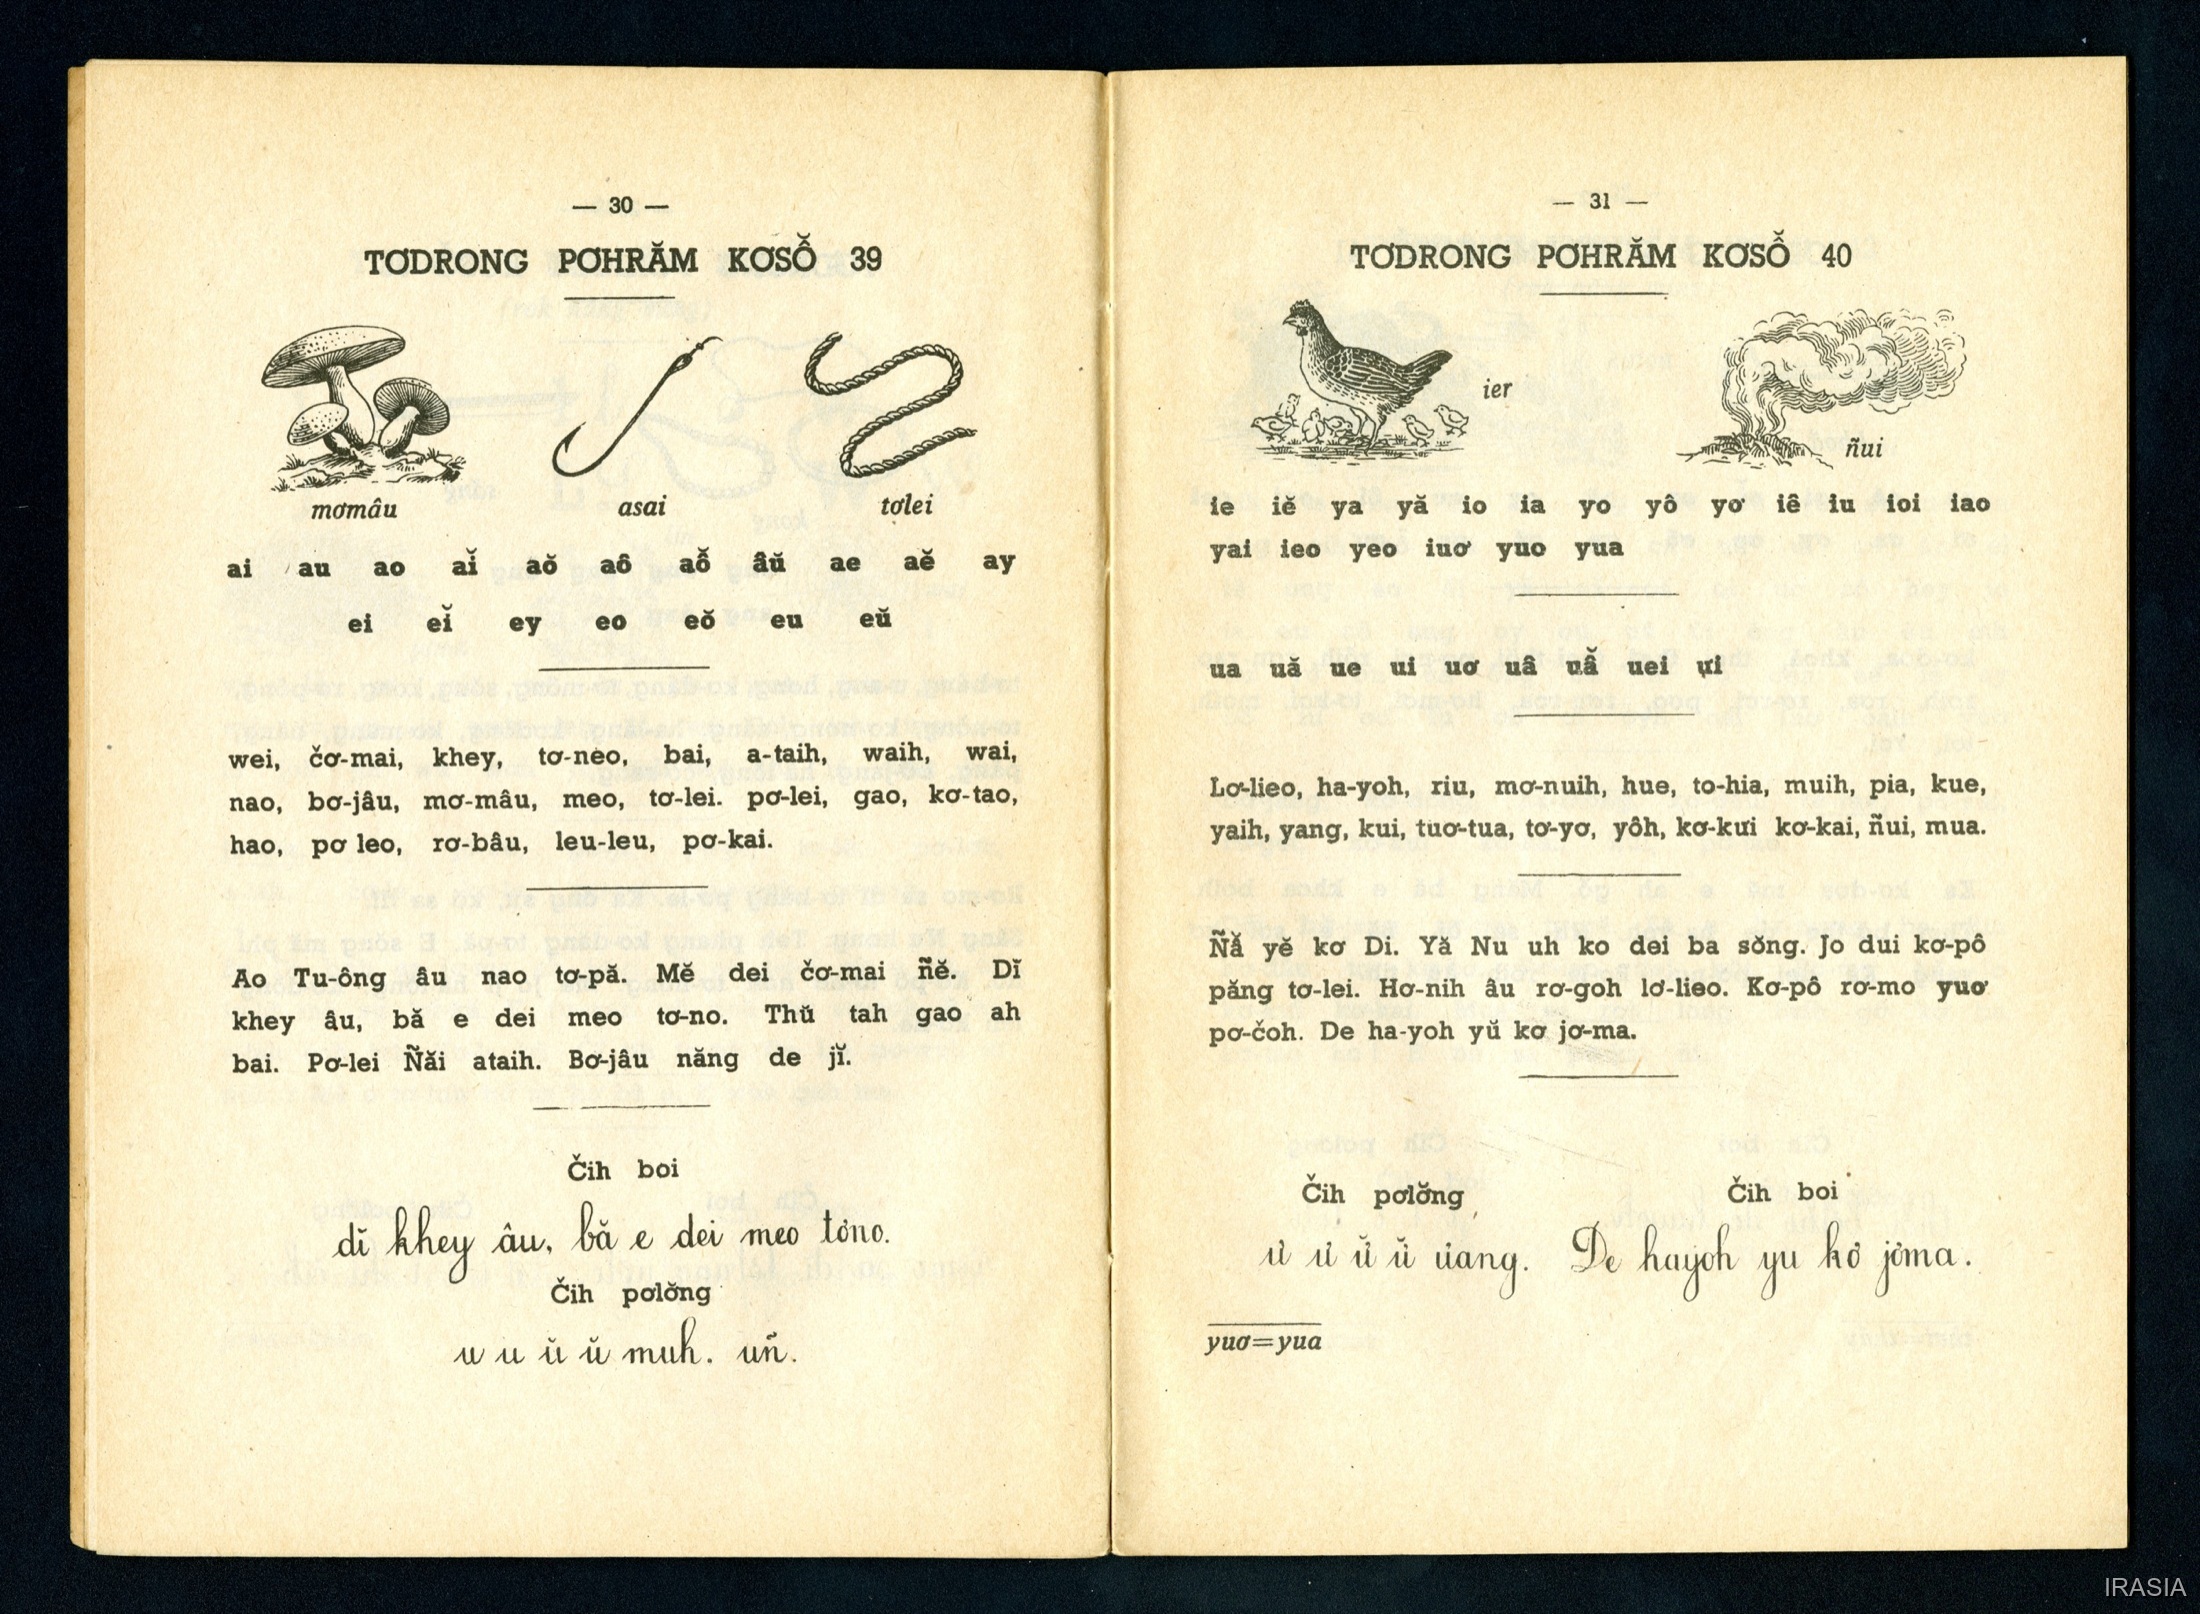 — 30 —
TƠDRONG PƠHRĂM KƠSÔ̆ 39
mơmâu asai tơlei
ai au ao aĭ aŏ aô aô̆ âŭ ae aĕ ay
ei eĭ ey eo eŏ eu eŭ
wei, čơ-mai, khey, tơ-neo, bai, a-taih, waih, wai,
nao, bơ-jâu, mơ-mâu, meo, tơ-lei. pơ-lei, gao, kơ-tao,
hao, pơ leo, rơ-bâu, leu-leu, pơ-kai.
Ao Tu-ông âu nao tơ-pă. Mĕ dei čơ-mai ñĕ. Dĭ
khey âu, bă e dei meo tơ-no. Thŭ tah gao ah
bai. Pơ-lei Ñăi ataih. Bơ-jâu năng de jĭ.
Čih boi
dĭ khey âu, bă e dei meo tơno.
Čih pơlơ̆ng
u u ŭ ŭ muh. uñ.
— 31 —
TƠDRONG PƠHRĂM KƠSÔ̆ 40
ier
ñui
ie iĕ ya yă io ia yo yô yơ iê iu ioi iao
yai ieo yeo iuơ yuo yua
ua uă ue ui uơ uâ uẫ uei ưi
Lơ-lieo, ha-yoh, riu, mơ-nuih, hue, to-hia, muih, pia, kue,
yaih, yang, kui, tuơ-tua, tơ-yơ, yôh, kơ-kưi kơ-kai, ñui, mua.
Ñâ̆ yĕ kơ Di. Yă Nu uh ko dei ba sơ̆ng. Jo dui kơ-pô
păng tơ-lei. Hơ-nih âu rơ-goh lơ-lieo. Kơ-pô rơ-mo yuơ
pơ-čoh. De ha-yoh yŭ kơ jơ-ma.
Čih pơlơ̆ng Čih boi
ư ư ư̆ ư̆ ưang. De hayoh yu kơ jơma.
yuơ=yua
IRASIA